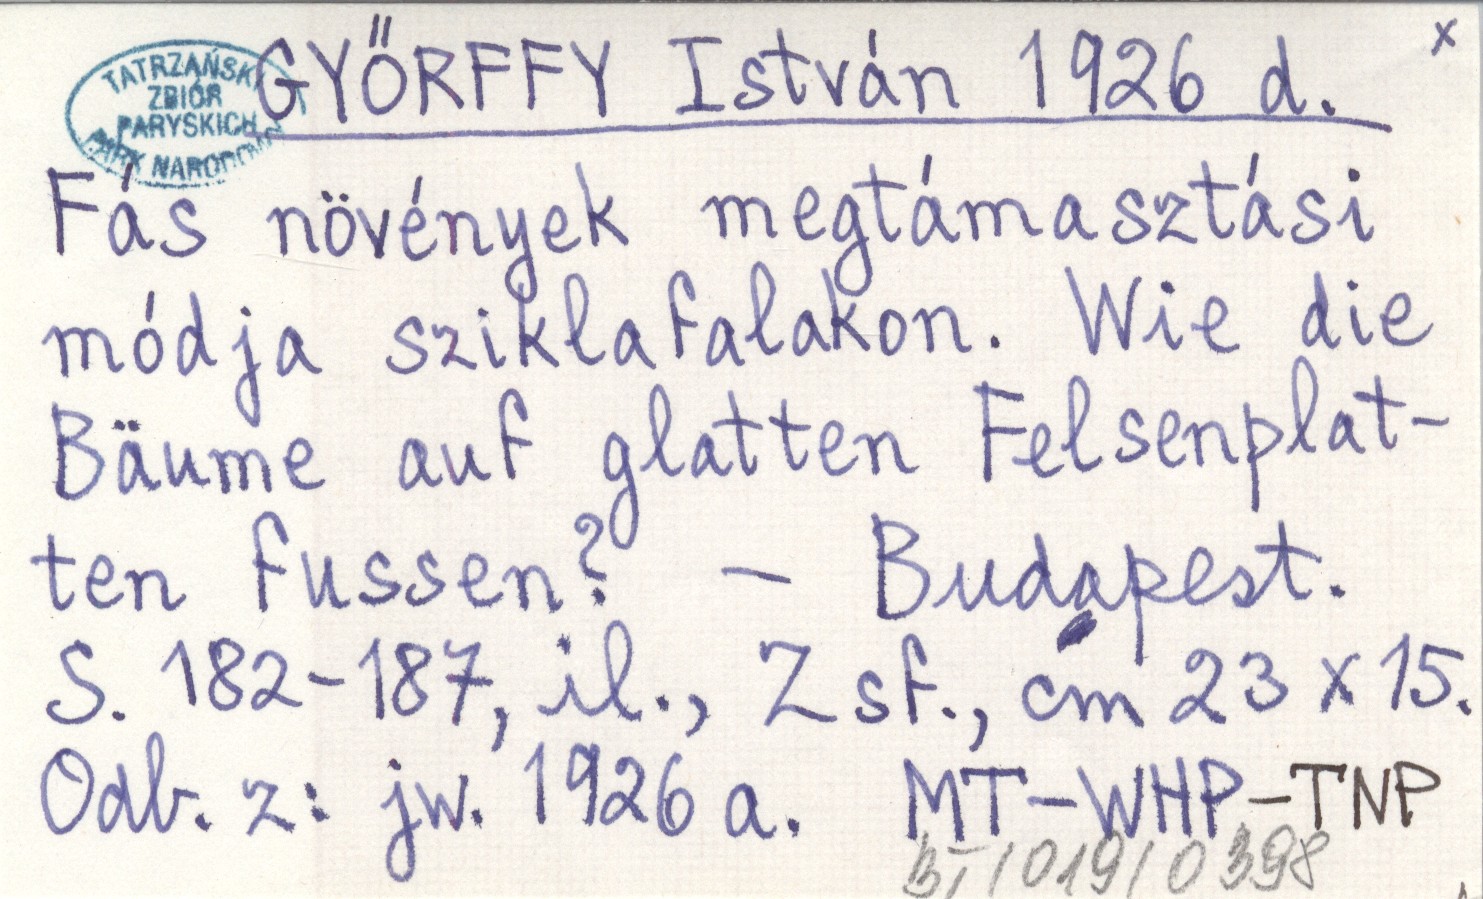 x
TATRZAŃSKI
ZBIÓR
PARYSKICH
PARK NARODOWY
GYŐRFFY István 1926 d.
Fás növények megtámasztási
módja sziklafalakon. Wie die
Bäume auf glatten Felsenplat-
ten fussen? – Budapest.
S. 182-187, il., Zsf., cm 23 x 15.
Odb. z: jw. 1926 a. MT-WHP-TNP
/019/0398